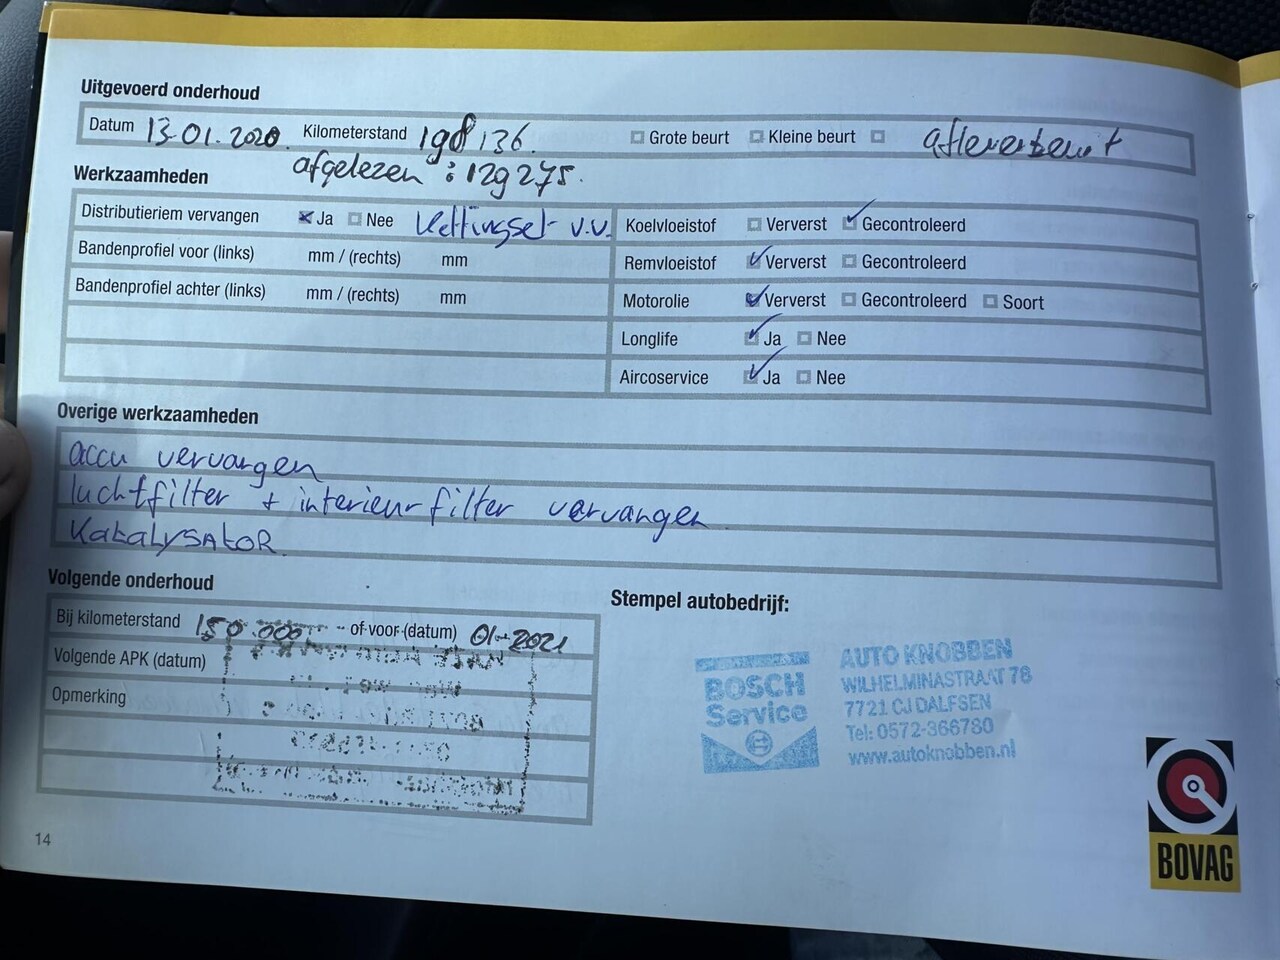 Uitgevoerd onderhoud
Datum 13-01-2020 Kilometerstand 198136. Grote beurt Kleine beurt afleverbeurt
afgelezen : 129275.
Werkzaamheden
Distributieriem vervangen Ja Nee Kettingset v.v. Koelvloeistof Ververst Gecontroleerd
Bandenprofiel voor (links) mm / (rechts) mm Remvloeistof Ververst Gecontroleerd
Bandenprofiel achter (links) mm / (rechts) mm Motorolie Ververst Gecontroleerd Soort
Longlife Ja Nee
Aircoservice Ja Nee
Overige werkzaamheden
accu vervangen
luchtfilter + interieurfilter vervangen
Katalysator.
Volgende onderhoud
Stempel autobedrijf:
Bij kilometerstand 150.000 of voor (datum) 01-2021
Volgende APK (datum)
Opmerking
BOSCH
Service
AUTO KNOBBEN
WILHELMINASTRAAT 78
7721 CJ DALFSEN
Tel: 0572-366780
www.autoknobben.nl
14
BOVAG